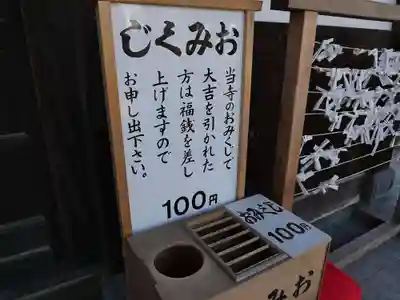 おみくじ
当寺のおみくじで
大吉を引かれた
方は福銭を差し
上げますので
お申し出下さい。
100円
おみくじ
100円
おみ